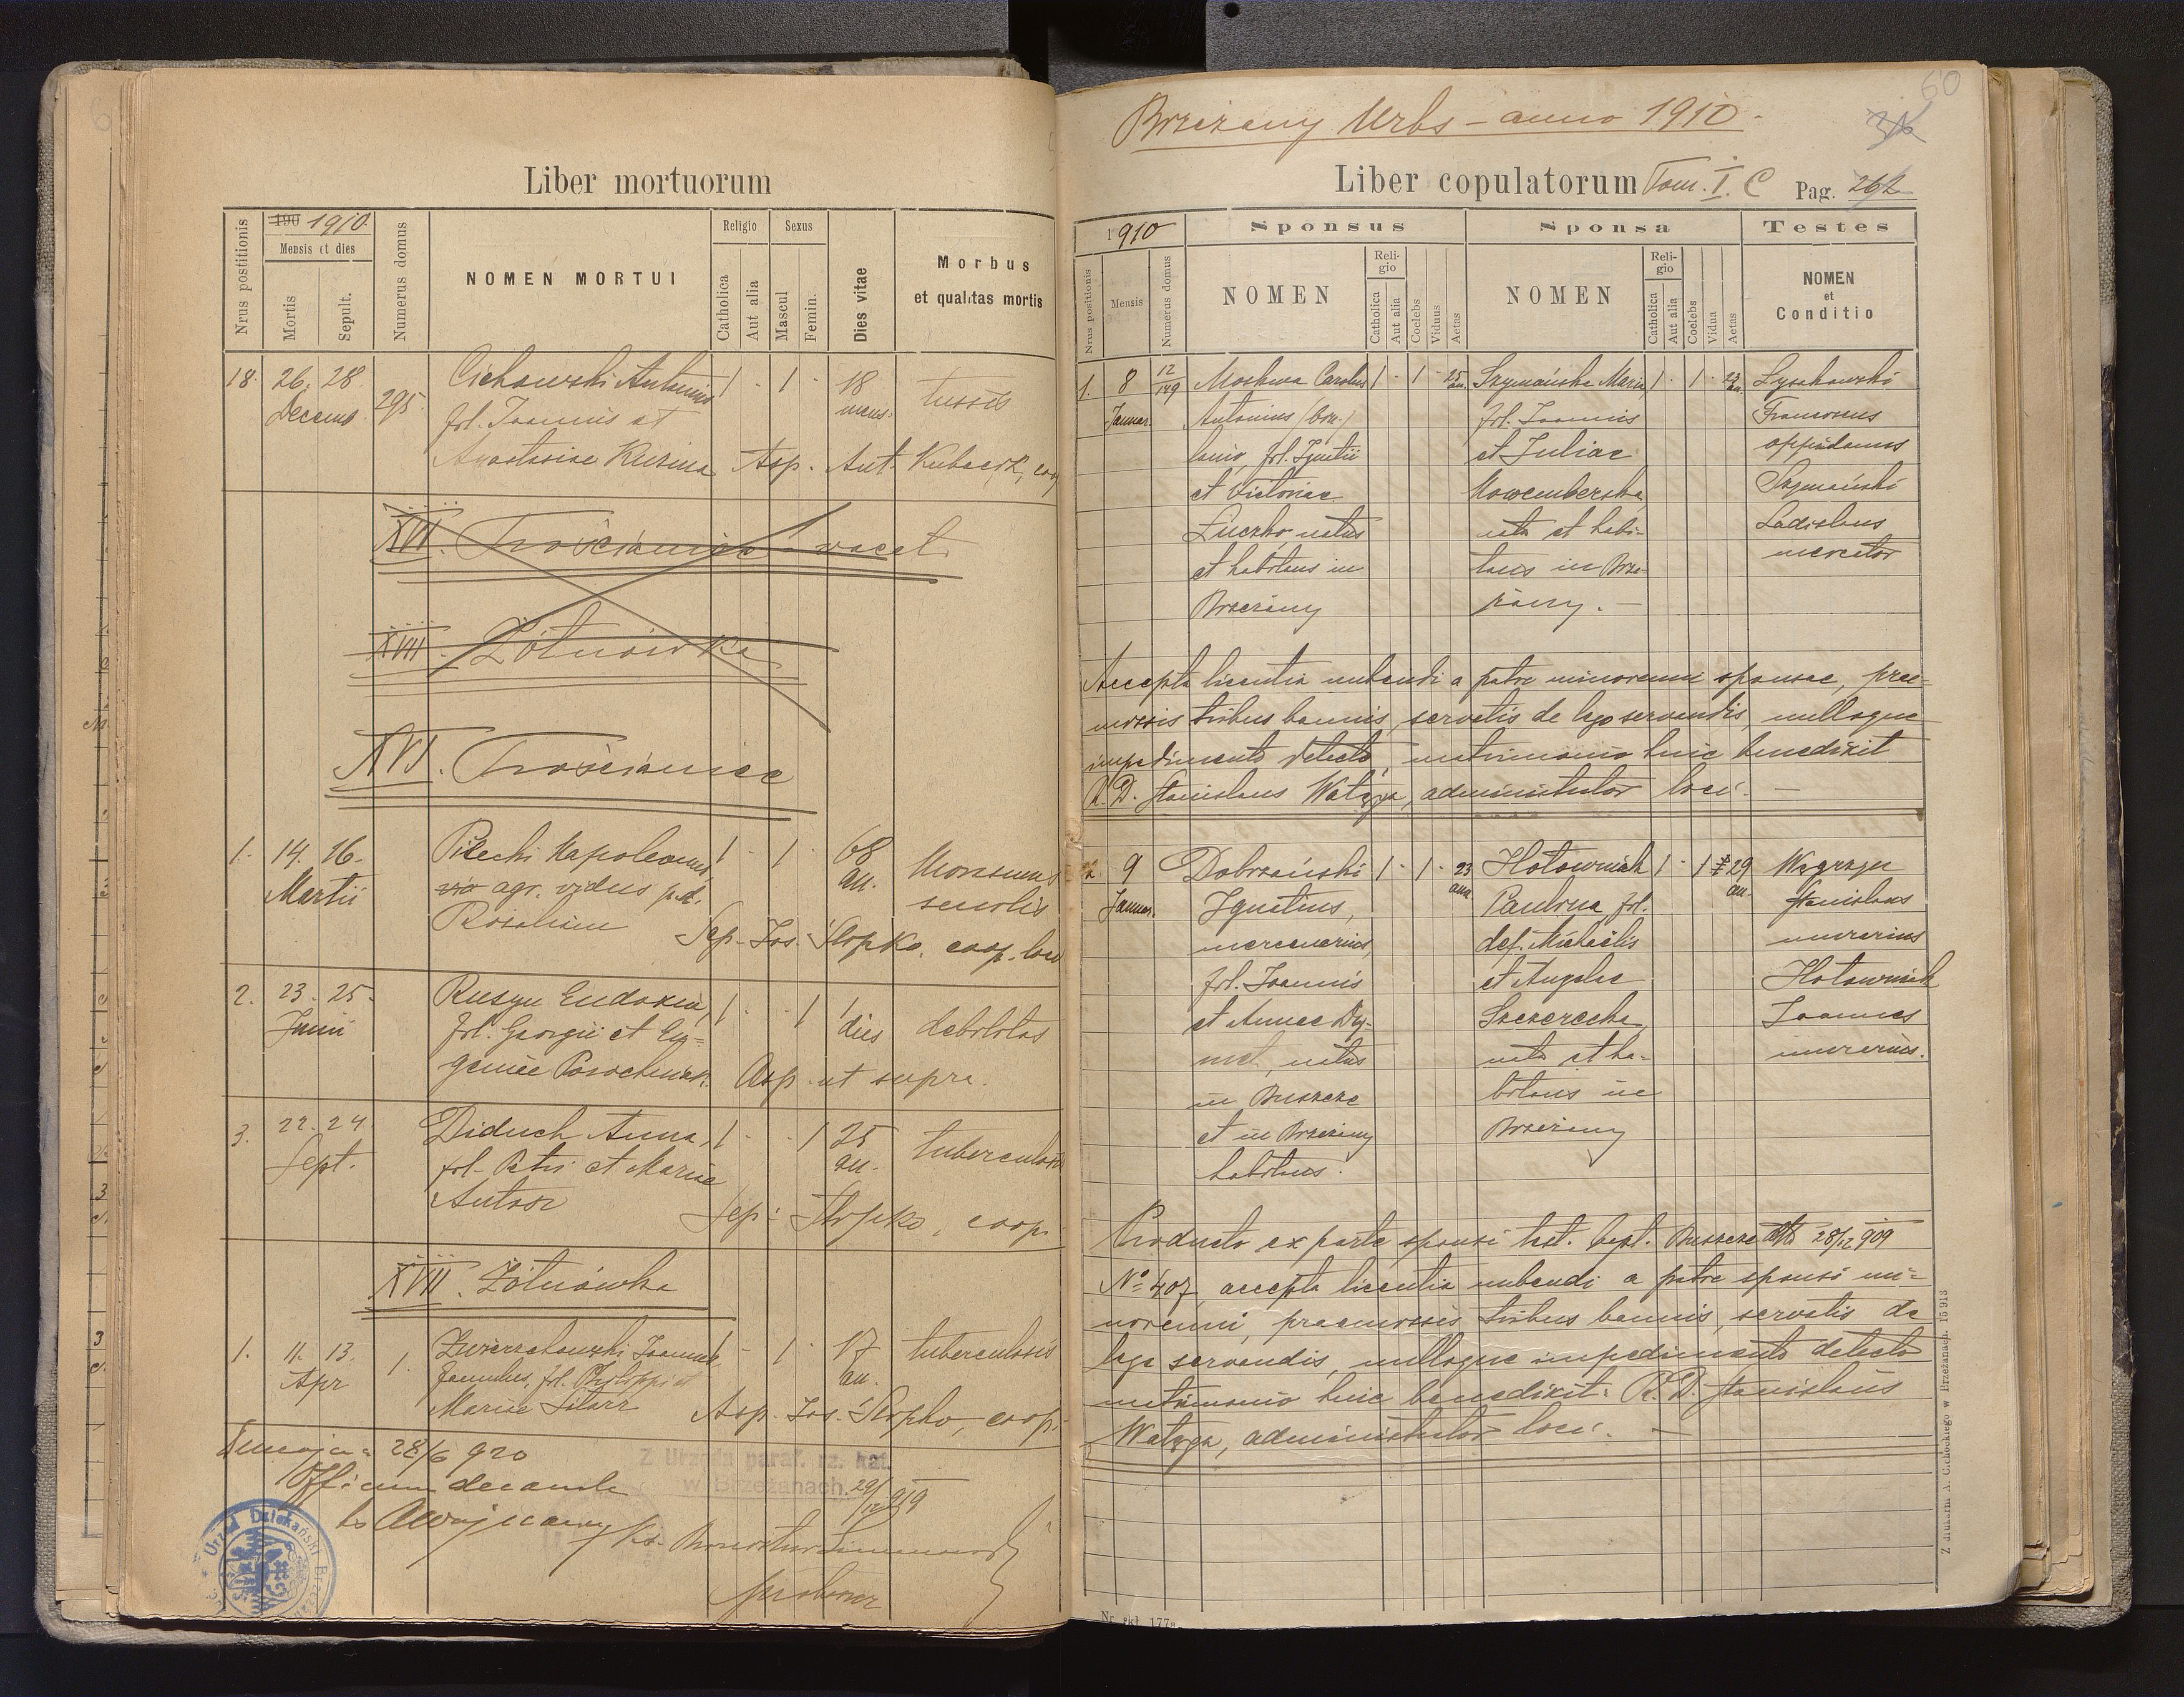 Liber mortuorum
Nrus postitionis
190 1910.
Mensis et dies
Mortis
Sepult.
Numerus domus
NOMEN MORTUI
Religio
Catholica
Aut alia
Sexus
Mascul
Femin.
Dies vitae
Morbus
et qualitas mortis
18. 26. 28 295 Cichowski Antonius 1 - 1 - 18 tussis
Decemb. fil. Joannis et mens.
Anastasiae Kusina Asp. Ant. Kubacik, coop
XVI. Trościaniec - vacat
XVII. Żółnówka
XVI. Trościaniec
1. 14. 16. Pilecki Napoleonus, 1 - 1 - 68 Morsmus
Martii agr. vidus p.d. an. senilis
Rosaliam Sep. Jos. Słopko, coop. loci
2. 23. 25. Rusyn Eudoxia, 1 - - 1 1 debilitas
Junii fil. Georgii et Eu- dies
geniae Asp. ut supra.
3. 22. 24 Diduch Anna, 1 - - 1 25 tuberculosis
Sept. fil. Petri et Mariae an.
Antosz Sep. Słopko, coop.
XVII. Żółnówka
1. 11. 13. 1. Zwierzchowski Joannes 1 - 1 - 17 tuberculosis
Apr famulus, fil. Philippi et an.
Mariae Sitarz Asp. Jos. Słopko, coop.
28/6 920
Officium decanale
Z Urzędu paraf. rz. kat.
w Brzeżanach. 29/12 919
Urząd Dziekański Brzeżań
proboszcz
60
Brzeżany Urbs - anno 1910.
Liber copulatorum Tom. I. C Pag. 262
1910
Nrus positionis
Mensis
Numerus domus
Sponsus
NOMEN
Religio
Catholica
Aut alia
Coelebs
Viduus
Aetas
Sponsa
NOMEN
Religio
Catholica
Aut alia
Coelebs
Vidua
Aetas
Testes
NOMEN
et
Conditio
1. 8 12/149 Moskwa Carolus 1 - 1 - 25 an. Szymańska Maria 1 - 1 - 23 an. Łysakowski
Januar. Antonius (bin.) fil. Joannis Franciscus
lanio, fil. Ignatii et Juliae oppidanus
et Victoriae Nowemberska Szymański
Łuczko natus nata et habi- Ladislaus
et habitans in tans in Brze- mercator
Brzeżany żany. -
Accepta licentia nubendi a patre minorenni sponsae, prae-
missis tribus bannis, servatis de lege servandis, nulloque
impedimento detecto, matrimonio huic benedixit
R. D. Stanislaus Wałęga, administrator loci. -
2. 9 Dobrzański 1 - 1 - 23 ann Hołowniak 1 - 1 29 an. Węgrzyn
Januar. Ignatius, Paulina fil. Stanislaus
mercenarius, def. Michaelis murarius
fil. Joannis et Angelae Hołowniak
et Annae Dy- Szczerecka, Joannes
mel, natus nata et ha- murarius.
in Buszcze bitans in
et in Brzeżany Brzeżany
habitans.
Producto ex parte sponsi test. bapt. Buszcze dto 28/12 909
No 407, accepta licentia nubendi a patre sponsi mi-
norenni, praemissis tribus bannis, servatis de
lege servandis, nulloque impedimento detecto
matrimonio huic benedixit: R. D. Stanislaus
Wałęga, administrator loci. -
Z drukarni A. Cichockiego w Brzeżanach. 15 913
Nr. skł. 177a